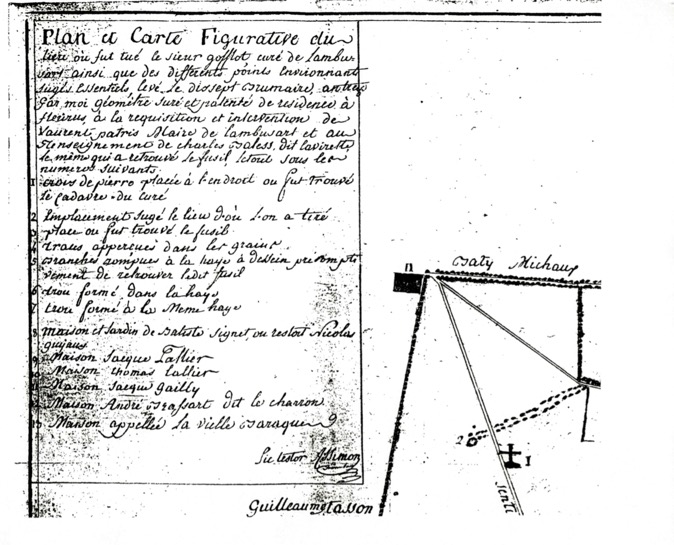 Plan et Carte Figurative du
lieu où fut tué le sieur gofflot curé de Lambu-
sart ainsi que des differents points Environnant
Jugés Essentiels levé le dissept Brumaire,
par moi géomètre juré et patenté de residence à
fleurus à la requisition et intervention de
Laurent patris Maire de lambusart et au
Renseignement de charles Baless. dit
le même qui a retrouvé le fusil, letout sous les
numeros suivants.
1 croix de pierre placée à l'endroit ou fut trouvé
le cadavre du curé
2 Emplacement Jugé le lieu d'où l'on a tiré
3 place ou fut trouvé le fusil
4 traces apperçues dans les grains.
5 Branches rompues à la haye à dessein
vement de retrouver ledit fusil
6 trou formé dans la haye
7 trou formé à la Meme haye
8 maison et Jardin de Batiste Signet, ou restoit Nicolas
9 Maison Jacque Lallier
10 Maison thomas Lallier
11 Maison Jacque gailly
12 Maison André Brassart dit le charron
13 Maison appellée la vielle Baraque
Sic testor Simon
Guilleaume tasson
n
Baty Michaux
2
1
senti